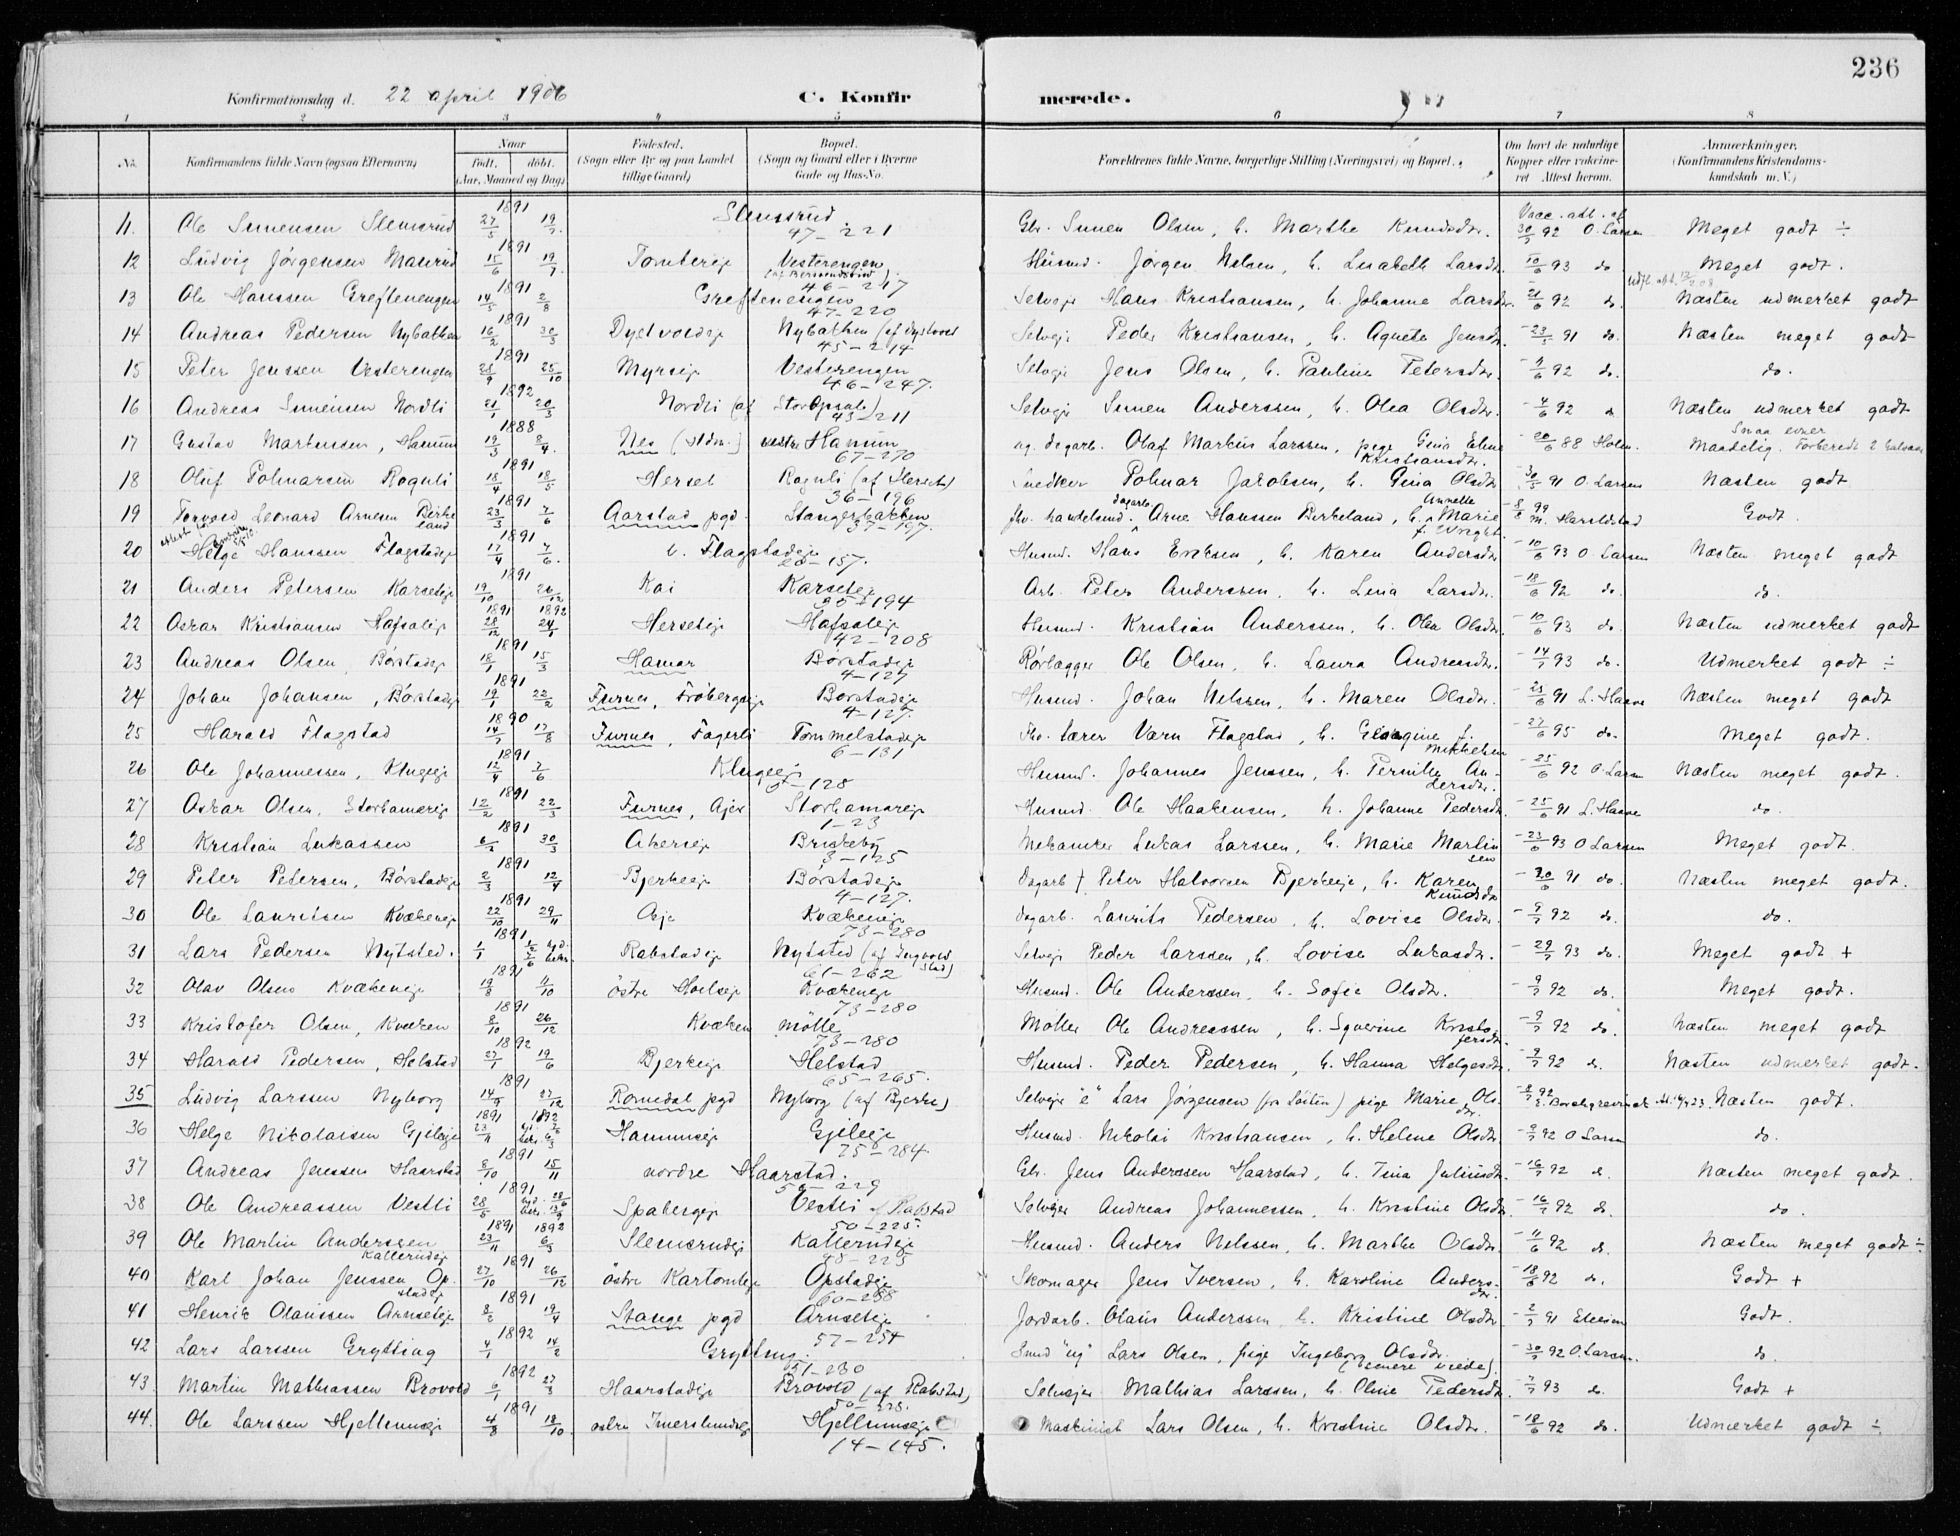 236
Konfirmationsdag d. 22 april 1906 C. Konfir merede.
1 2 3 4 5 6 7 8
No. Konfirmandens fulde Navn (ogsaa Efternavn) Naar født, døbt. (Aar, Maaned og Dag) Fødested. (Sogn eller By og paa Landet tillige Gaard) Bopæl. (Sogn og Gaard eller i Byerne Gade og Hus-No. Forældrenes fulde Navne, borgerlige Stilling (Næringsvei) og Bopæl. Om havt de naturlige Kopper eller vakcineret Attest herom. Anmærkninger. (Konfirmandens Kristendomskundskab m. V.)
11. Ole Simensen Slemsrud 1891 27/5 19/7. Slemsrud 47-221 Gbr. Simen Olsen, h. Marthe Knudsdr. Vacc. att. af 30/7 92 O. Larsen Meget godt ÷
12 Ludvig Jørgensen 1891 15/6 19/7 Tomtereje Vesterengen 46-247 Husmd. Jørgen Nilsen, h. Lisabeth Larsdr. 10/6 93 do Meget godt.
13 Ole Hanssen Greftenengen 1891 14/5 2/8 Greftenengen 47-220 Selveje Hans Kristiansen, h. Johanne Larsdr. 21/6 92 do. Næsten udmerket godt
14 Andreas Pedersen Nybakken 1891 16/2 30/3 Dystvoldeje Nybakken (af Dystvold 45-214 Selveje Peder Kristiansen, h. Agnete Jensdr. 23/5 91 do. Næsten meget godt
15 Peter Jenssen Vesterengen 1891 25/9 25/10 Myrseje Vesterengen 46-247. Selveje Jens Olsen, h. Pauline Petersdr. 4/6 92 do. do.
16 Andreas Simensen Nordli 1892 21/1 20/3 Nordli (af Storopsale) 43-211 Selveje Simen Anderssen, h. Olea Olsdr. 4/6 92 do Næsten udmerket godt
17 Gustav Martinsen, Hamum 1888 19/3 2/4. Nes (Hdm.) vestre Hamum 67-270 ug. dagarb. Olaf Markus Larssen, pige Gina Eline Kristiansdr. 20/6 88 Holm. Smaa evner Maadelig. Forberedt 2 halvaar
18 Oluf Polmarsen Rognli 1891 15/4 18/5 Hersel Rognli (af Hersel) 36-196 Snedker Polmar Jakobsen, h. Gina Olsdr. 30/5 91 O. Larsen Næsten godt
19 Torvald Leonard Arnesen Birkeland 1891 23/3 7/6 Aarstad pgd Stangerbakken 37-197. fhv. handelsmd. dagarb. Arne Hanssen Birkeland, h. Annette Marie f. Wright 8/6 99 M. Haraldstad Godt.
20 Helge Hanssen Flagstadeje 1891 17/4 7/6. l. Flagstadeje 20-157. Husmd. Hans Eriksen, h. Karen Andersdr. 10/6 93 O. Larsen Næsten meget godt
21 Anders Petersen Karseteje 1891 19/10 26/12 Kai Karseteje 35-194 Arb. Peter Anderssen, h. Lina Larsdr. 18/6 92 do. do.
22 Oskar Kristiansen Hafsaleje 1891 28/12 1892 24/1 Herseteje Hafsaleje 42-208 Husmd. Kristian Anderssen, h. Olea Olsdr. 10/6 93 do. Næsten udmerket godt
23 Andreas Olsen, Børstadeje 1891 18/1 15/3 Hamar Børstadeje 4-127 Rørlægger Ole Olsen, h. Laura Andreasdr. 14/7 93 do. Udmerket godt ÷
24 Johan Johansen, Børstadeje 1891 19/1 22/2 Furnes, Frøbergeje Børstadeje 4-127. Husmd. Johan Nilssen, h. Maren Olsdr. 25/6 91 L. Haave Næsten meget godt
25 Harald Flagstad 1890 14/7 17/8 Furnes, Fagerli Tommelstadeje 6-131 Fhv. lærer Værn Flagstad, h. Georgine f. Mikkelsen 27/6 95 do. Meget godt.
26 Ole Johannessen, Klugeeje 1891 12/4 7/6 Klugeeje 5-128 Husmd. Johannes Jenssen, h. Pernille Andersdr. 25/6 92 O. Larsen Næsten meget godt.
27 Oskar Olsen, Storhamareje 1891 12/2 22/3 Furnes, Ajer Storhamareje 1-23 Husmd. Ole Haakensen, h. Johanne Pedersdr. 25/6 91 L. Haave do.
28 Kristian Lukassen 1891 6/2 30/3 Akerseje Briskeby 3-125 Mekaniker Lukas Larssen, h. Marie Martinsen 23/6 93 O Larsen Meget godt
29 Peter Petersen, Børstadeje 1891 2/3 12/4 Bjerkeeje Børstadeje 4-127. Dagarb † Peter Halvorsen Bjerkeeje, h. Karen Knudsdr 20/6 91 do. Næsten meget godt.
30 Ole Lauritsen Kvækeneje 1891 22/10 29/11 Oeje Kvækeneje 73-280 Dagarb. Laurits Pedersen, h. Lovise Olsdr. 9/7 92 do. do.
31 Lars Pedersen Nytsted. 1891 1/1 Rabstadeje Nytsted (af Ingvoldstad) 61-262 Selveje Peder Larssen, h. Lovise Lukasdr. 29/7 93 do. Meget godt +
32 Olav Olsen Kvækeneje 1891 19/8 11/10 østre Hoelseje Kvækeneje 73-280 Husmd. Ole Anderssen, h. Sofie Olsdr. 9/7 92 do. Meget godt.
33 Kristofer Olsen, Kvæken 1891 8/10 26/12 Kvæken mølle 73-280 Møller Ole Andreassen, h. Syverine Kristofersdr. 9/7 92 do. Næsten meget godt
34 Harald Pedersen, Helstad 1892 27/1 19/6 Bjerkeeje Helstad 65-265. Husmd. Peder Pedersen, h. Hanna Helgesdr. 9/7 92 do. Næsten udmerket godt.
35 Ludvig Larssen Nyborg 1891 14/9 27/12 Romedal pgd Nyborg (af Bjerke) Selveje "e" Lars Jørgensen (fra Løiten) pige Marie Olsdr. 8/7 92 E. Borchgrevinck Næsten godt.
36 Helge Nikolaisen Gjileeje 1891 23/11 1892 Hammeseje Gjileeje 75-284 Husmd. Nikolai Kristiansen, h. Helene Olsdr. 9/7 92 O Larsen do.
37 Andreas Jenssen Haarstad 1891 8/10 15/11 nordre Haarstad. 52-229 Gbr. Jens Anderssen Haarstad, h. Tina Juliusdr. 16/7 92 do. Næsten meget godt.
38 Ole Andreassen Vestli 1891 28/5 Spabergeje Vestli af Rabstad 50-225. Selveje Andreas Johannessen, h. Kristine Olsdr. 16/7 92 do. do.
39 Ole Martin Anderssen Kallerudeje 1891 23/11 1892 6/3 Slemsrudeje Kallerudeje Husmd. Anders Nilssen, h. Marthe Olsdr. 11/6 92 do. Næsten meget godt ÷
40 Karl Johan Jenssen Opstadeje 1891 27/10 26/12 østre Kartomteje Opstadeje 60-258 Skomager Jens Iversen, h. Karoline Andersdr. 18/6 92 do. Godt +
41 Henrik Olaussen Arneseteje 1891 8/2 19/4 Stange pgd Arneseteje 57-254 Jordarb. Olaus Anderssen, h. Kristine Olsdr 2/7 91 Godt.
42 Lars Larssen Grytting 1892 4/1 14/2 Grytting. 51-230 Smed "ug" Lars Olsen, pige Ingeborg Olsdr. (senere viede). 30/7 92 O. Larsen. do.
43. Martin Mathiassen Brovold 1892 6/1 27/3 Haarstadeje Brovold (af Rabstad) 50-225. Selveje Mathias Larssen, h. Oline Pedersdr. 7/7 93 do. Godt +
44. Ole Larssen Hjellumeje 1891 4/8 18/10 østre Imerslundeje Hjellumeje 14-145. Maskinist Lars Olsen, h. Kristine Olsdr. 18/6 92 do. Udmerket godt ÷